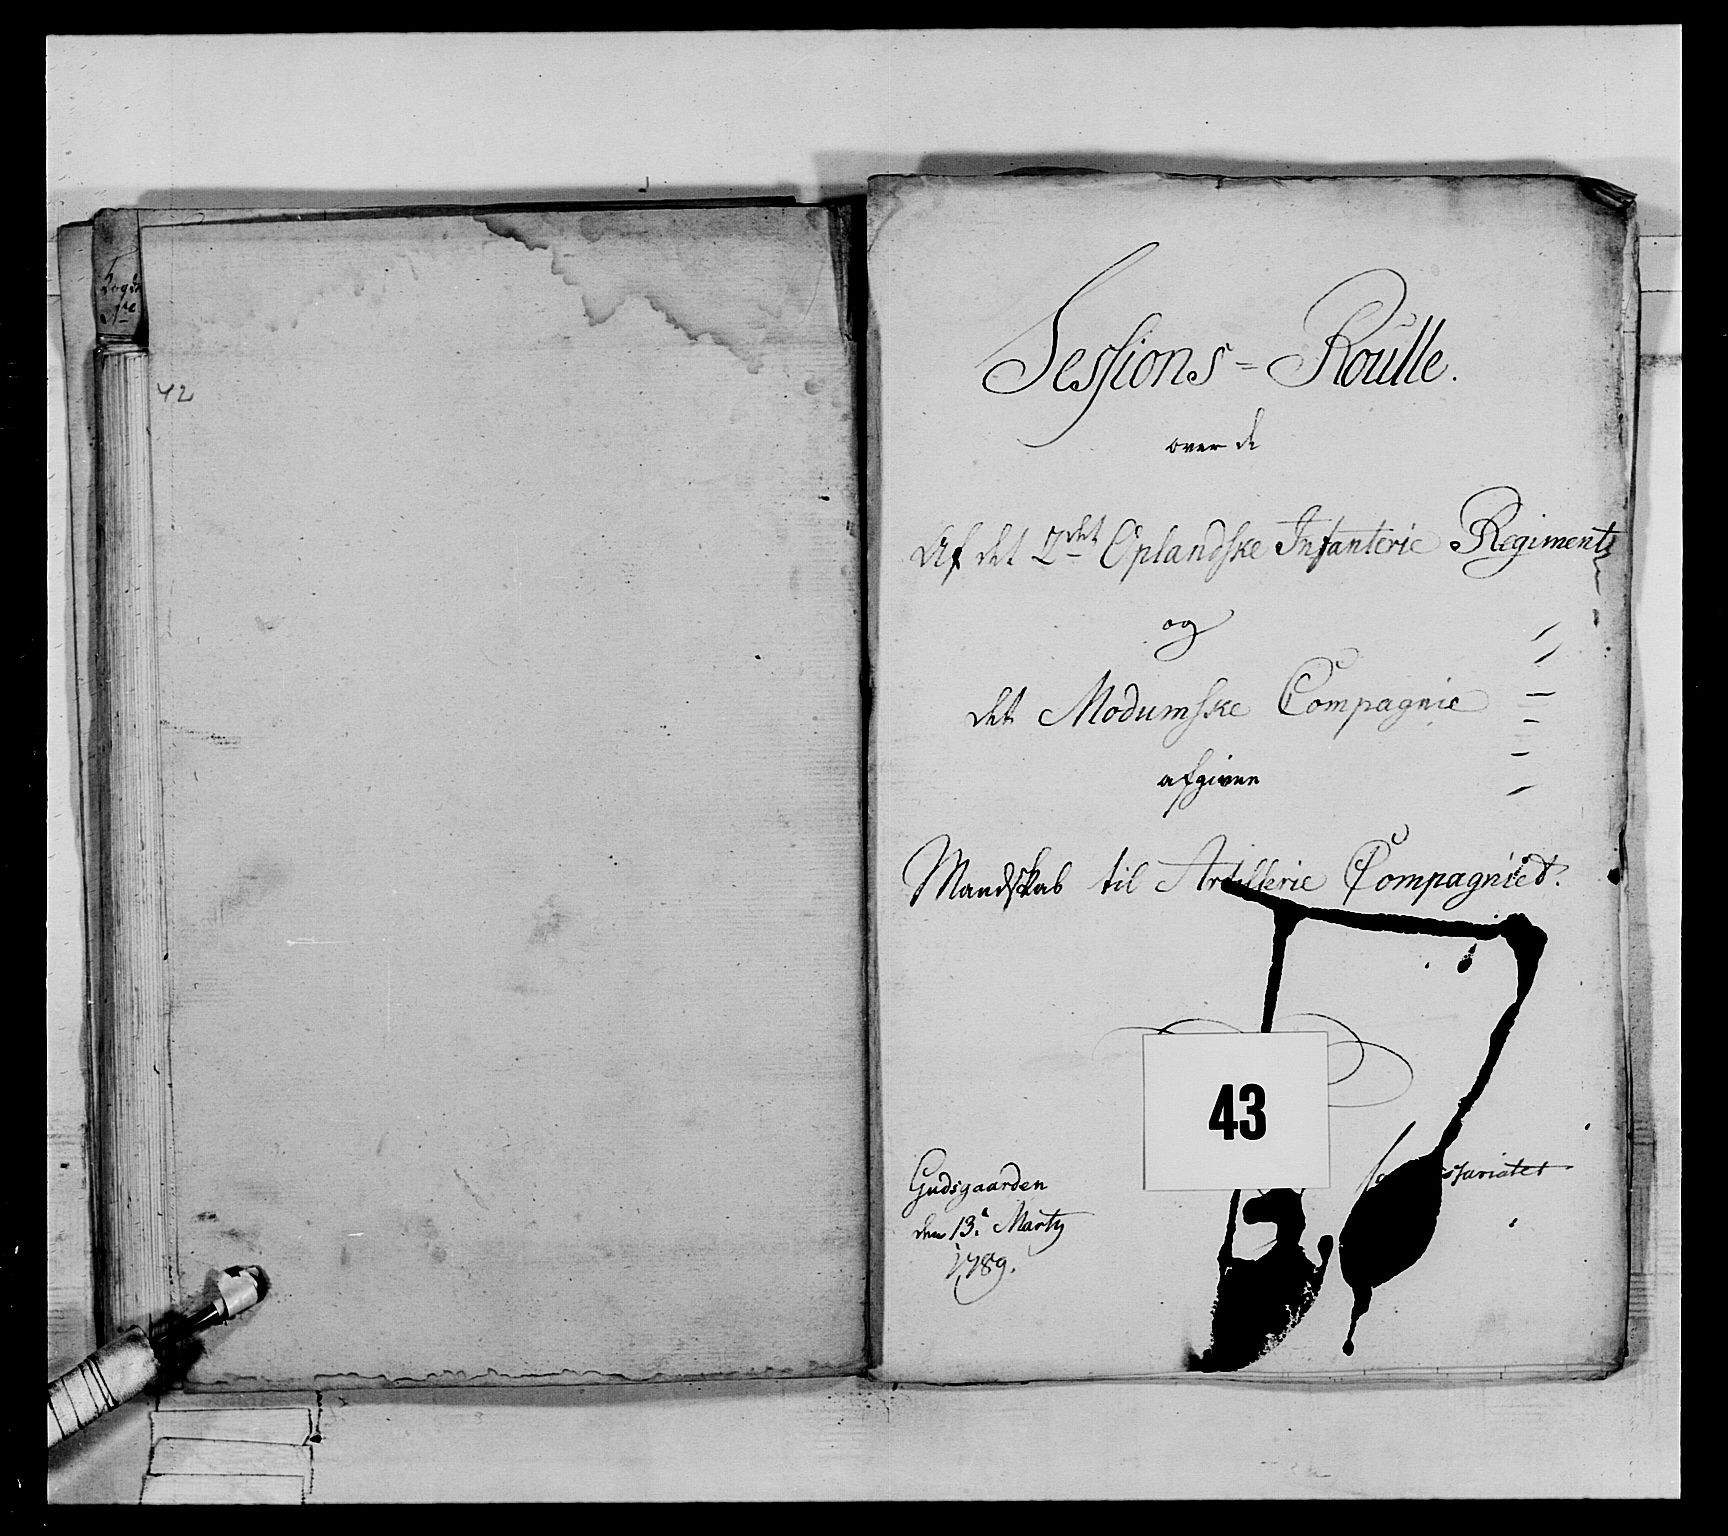 42
Sessions = Roulle.
over de
Af det 2det Oplandske Infanterie Regiment
og
det Modumske Compagnie
afgivne
Mandskab til Artillerie Compagniet.
43
Gudsgaarden
den 13de Marty
1789.